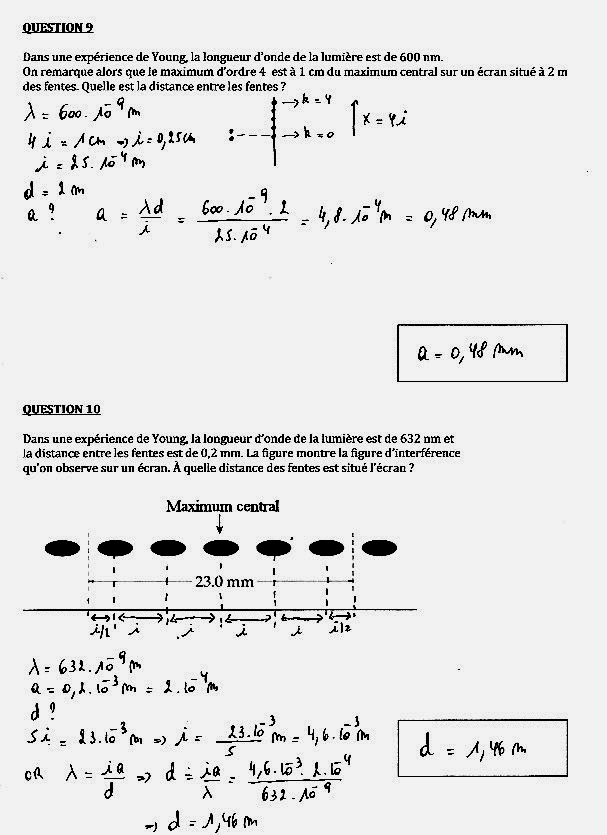 QUESTION 9
Dans une expérience de Young, la longueur d'onde de la lumière est de 600 nm.
On remarque alors que le maximum d'ordre 4 est à 1 cm du maximum central sur un écran situé à 2 m
des fentes. Quelle est la distance entre les fentes ?
λ = 600. 10⁻⁹ m
→ k = 4
4 i = 1 cm ⇒ i = 0,25 cm
→ k = 0
x = 4i
i = 25. 10⁻⁴ m
d = 2 m
a ? a = λd / i = 600. 10⁻⁹. 2 / 25. 10⁻⁴ = 4,8. 10⁻⁴ m = 0,48 mm
a = 0,48 mm
QUESTION 10
Dans une expérience de Young, la longueur d'onde de la lumière est de 632 nm et
la distance entre les fentes est de 0,2 mm. La figure montre la figure d'interférence
qu'on observe sur un écran. À quelle distance des fentes est situé l'écran ?
Maximum central
23.0 mm
i/2 i i i i i/2
λ = 632. 10⁻⁹ m
a = 0,2. 10⁻³ m = 2. 10⁻⁴ m
d ?
5 i = 23. 10⁻³ m ⇒ i = 23. 10⁻³ / 5 m = 4,6. 10⁻³ m
d = 1,46 m
OR λ = ia / d ⇒ d = ia / λ = 4,6. 10⁻³. 2. 10⁻⁴ / 632. 10⁻⁹
⇒ d = 1,46 m